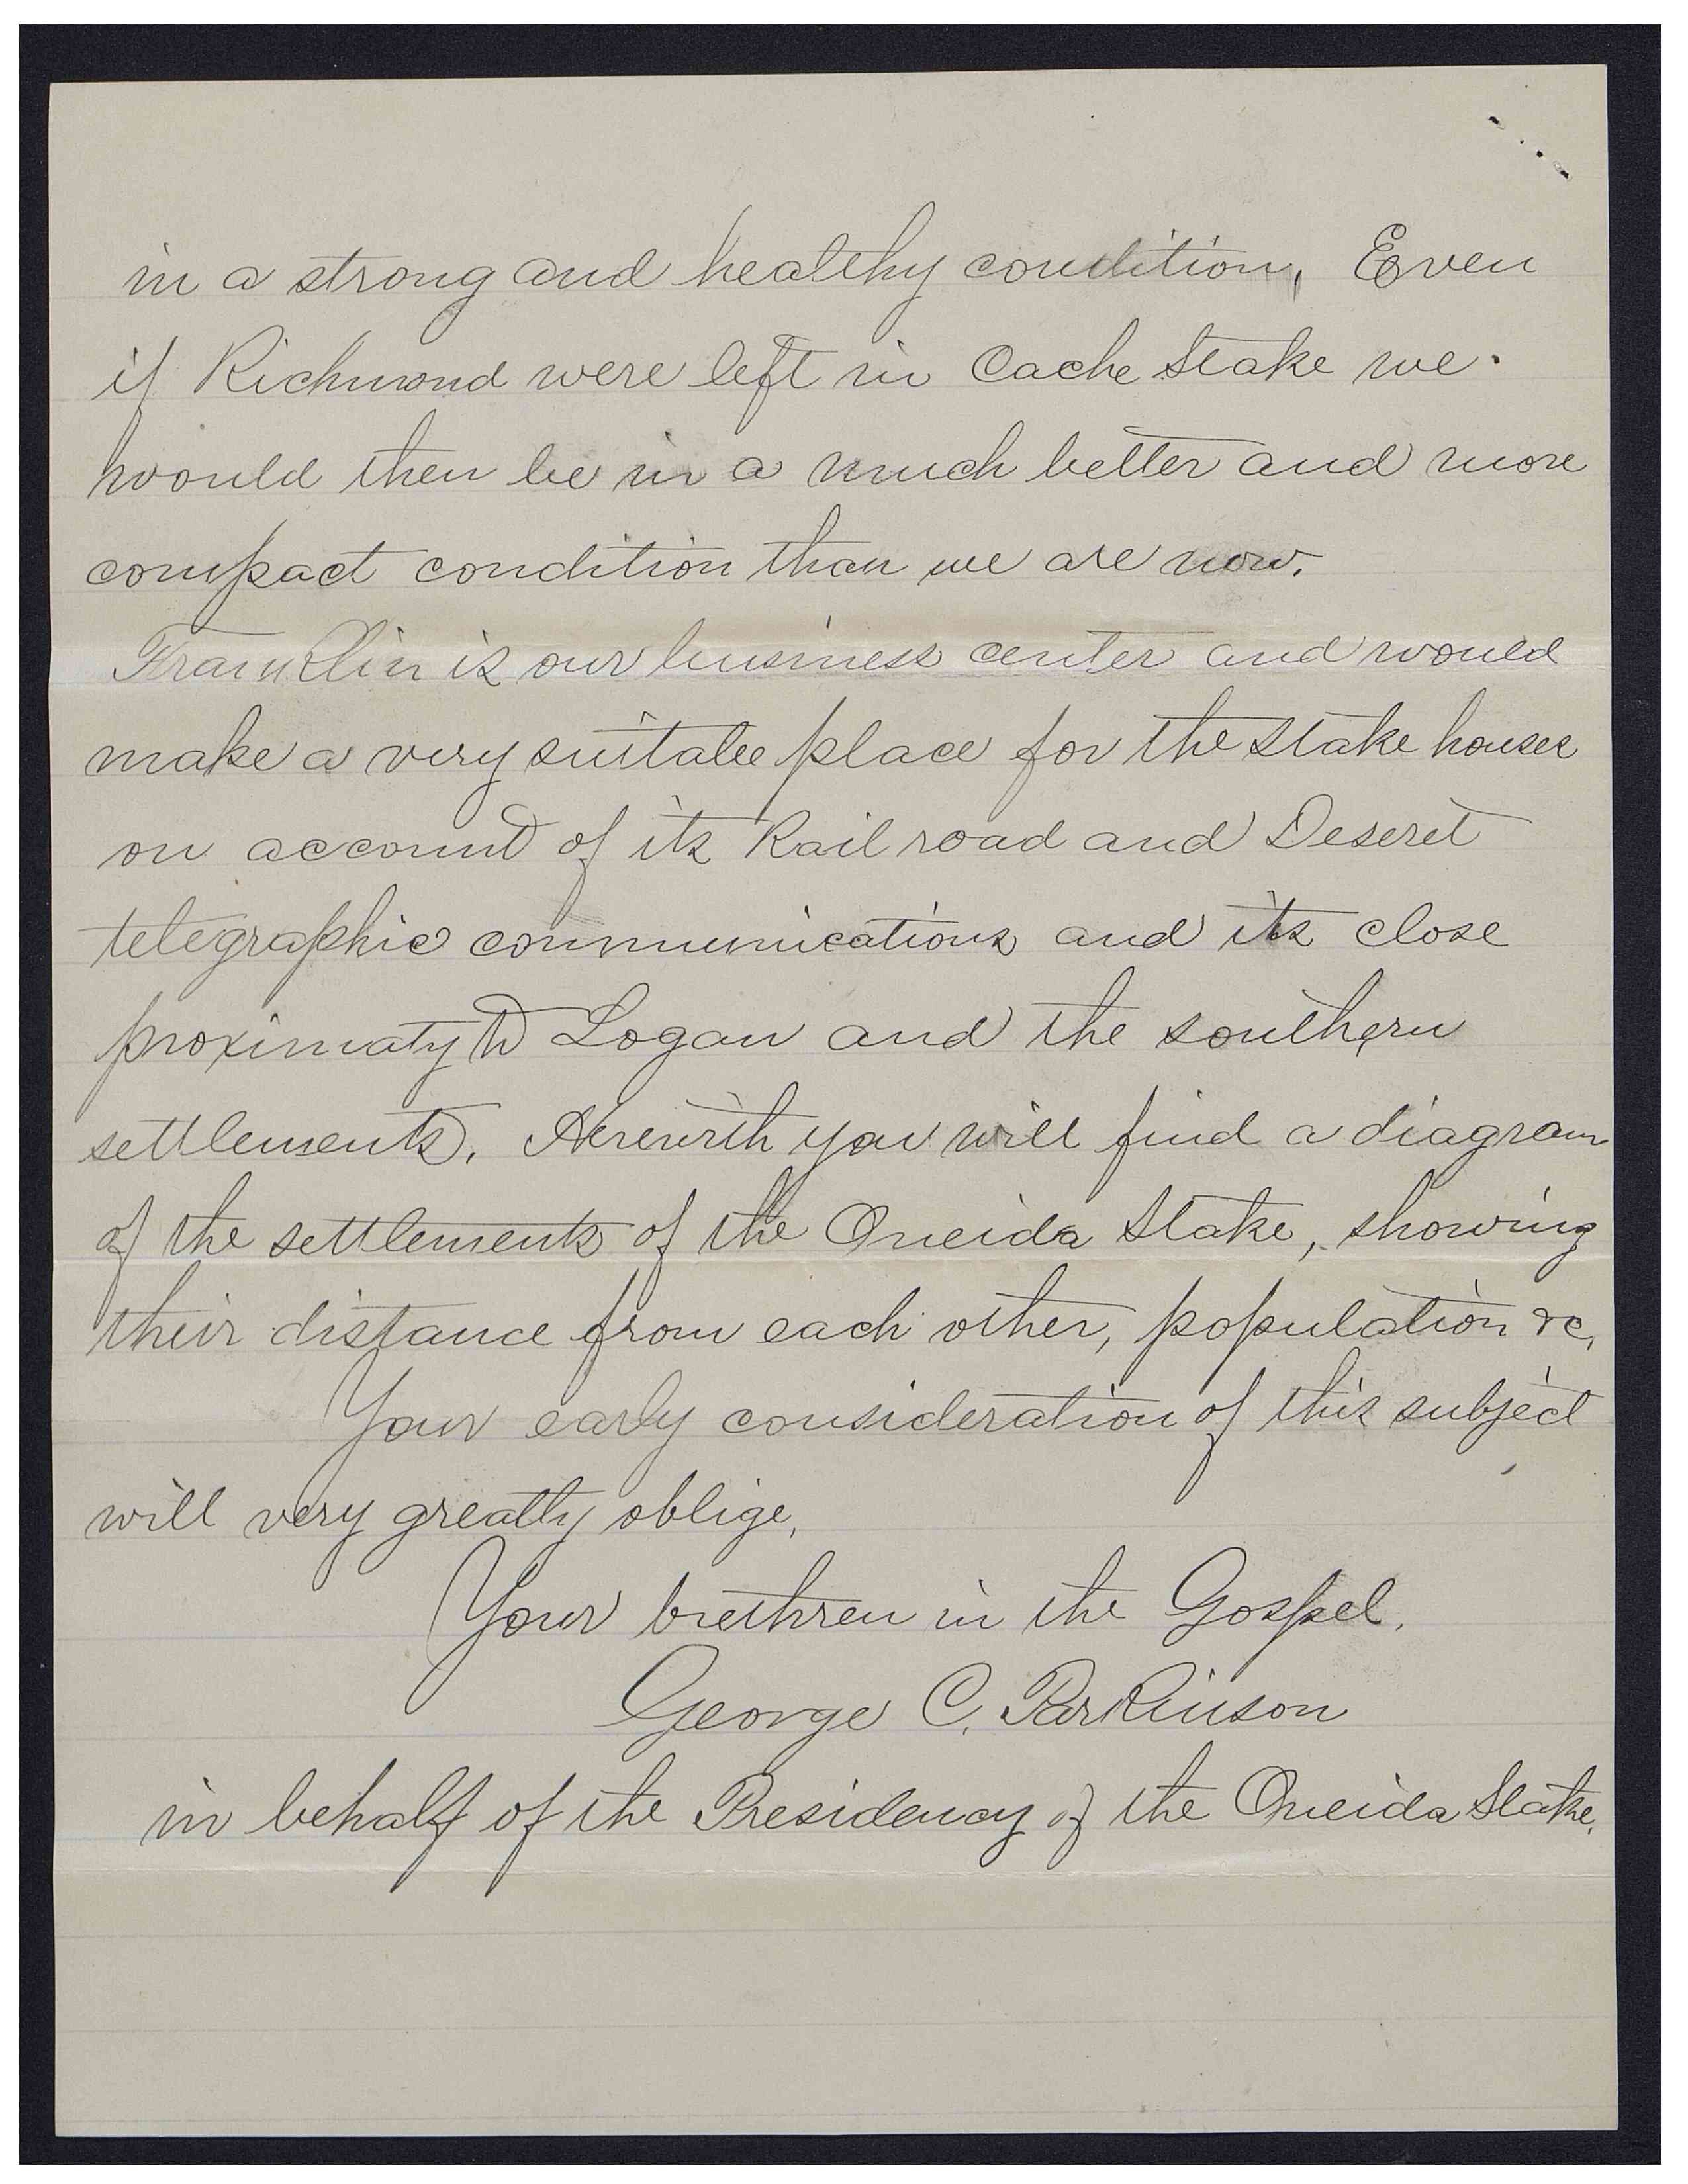 in a strong and healthy condition, Even
if Richmond were left in Cache Stake we
would then be in a much better and more
compact condition than we are now.
Franklin is our business center and would
make a very suitale place for the stake houses
on account of its Rail road and Deseret
telegraphic communications and its close
proximaty to Logan and the southern
settlements. Herewith you will find a diagram
of the settlements of the Oneida Stake, showing
their distance from each other, population &c,
Your early consideration of this subject
will very greatly oblige,
Your brethren in the Gospel.
George C. Parkinson
in behalf of the Presidency of the Oneida Stake.